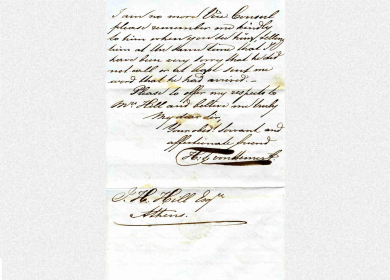 I am no more Vice Consul
please remember me kindly
to him when you see him, telling
him at the same time that I
have been very sorry that he did
not call or at least send me
word that he had arrived.
Please to offer my respects to
Mrs Hill and believe me truly
My dear Sir,
Your obdt servant and
affectionate friend
J. H. Hill Esqre
Athens.